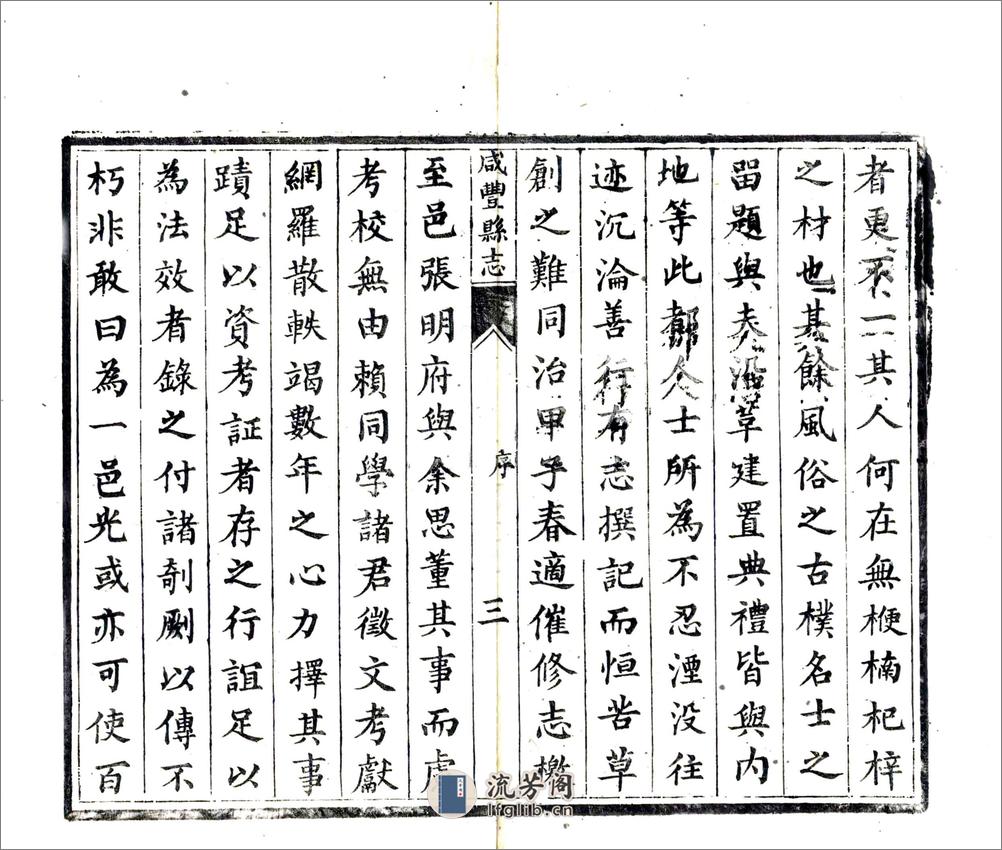 者更不一二其人何在無楩楠杞梓
之材也其餘風俗之古樸名士之
畱題與夫沿革建置典禮皆與内
地等此都人士所為不忍湮没往
迹沉淪善行有志撰記而恒苦草
創之難同治甲子春適催修志檄
咸豐縣志
序
三
至邑張明府與余思董其事而慮
考校無由賴同學諸君徵文考獻
網羅散軼竭數年之心力擇其事
蹟足以資考証者存之行誼足以
為法效者錄之付諸剞劂以傳不
朽非敢曰為一邑光或亦可使百
流芳阁
lfglib.cn